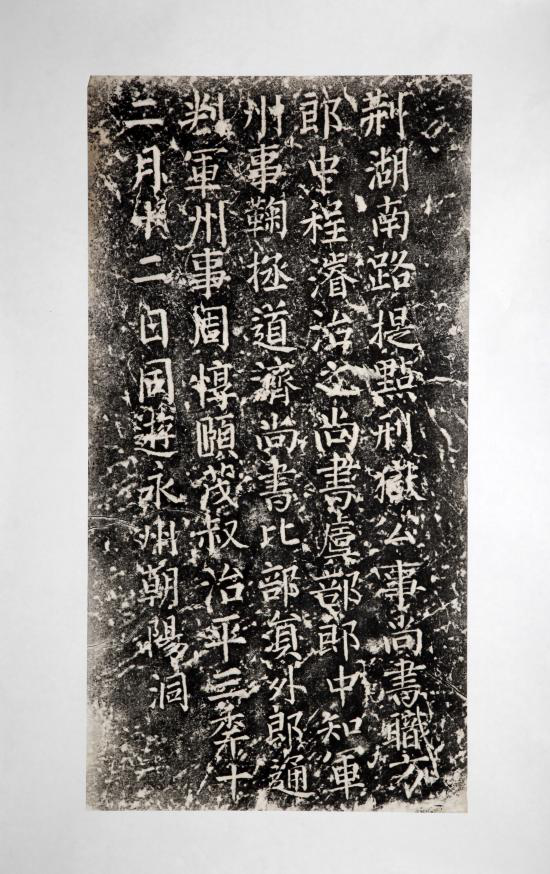 荆湖南路提點刑獄公事尚書職方
郎中程濬治之尚書虞部郎中知軍
州事鞠拯道濟尚書比部員外郎通
判軍州事周惇頤茂叔治平三年十
二月十二日同遊永州朝陽洞